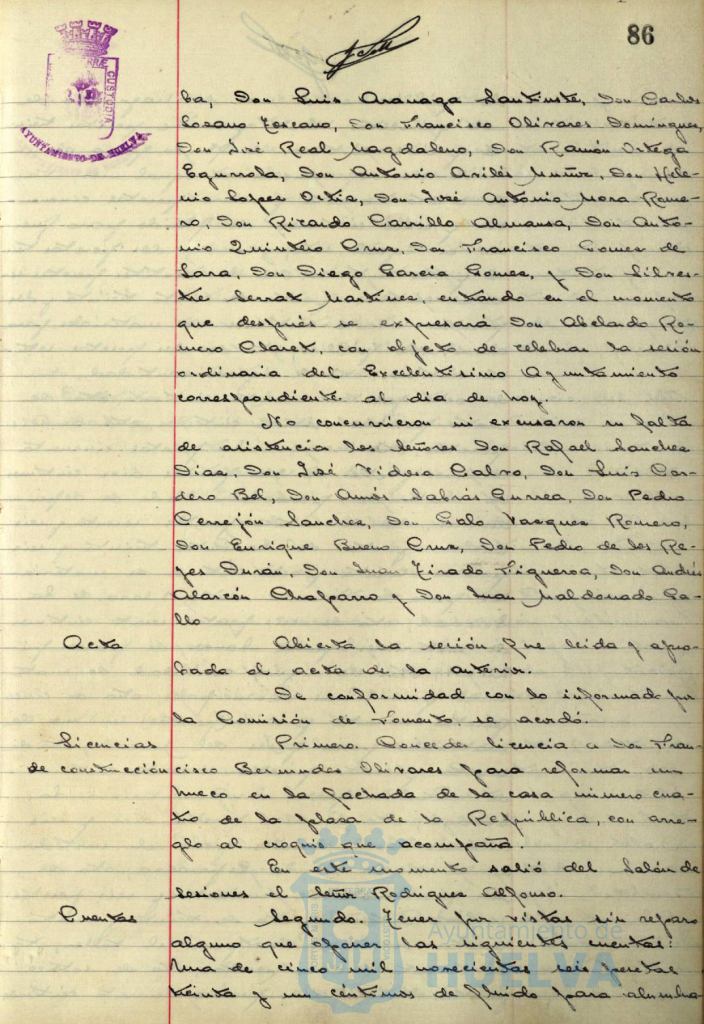 86
AYUNTAMIENTO DE HUELVA
CUSTODIA
ba, Don Luis Aranaga Santiuste, Don Carlos
Lozano Toscano, Don Francisco Olivares Domínguez,
Don José Real Magdaleno, Don Ramón Ortega
Egurrola, Don Antonio Avilés Muñoz, Don Hele-
nio Lopez Ortiz, Don José Antonio Mora Rome-
ro, Don Ricardo Carrillo Almansa, Don Anto-
nio Quintero Cruz, Don Francisco Gomez de
Lara, Don Diego García Gomez, y Don Silves-
tre Serrat Martinez, entrando en el momento
que después se expresará Don Abelardo Ro-
mero Claret, con objeto de celebrar la sesión
ordinaria del Excelentísimo Ayuntamiento
correspondiente al dia de hoy.
No concurrieron ni excusaron su falta
de asistencia los señores Don Rafael Sanchez
Diaz, Don José Vidosa Calvo, Don Luis Cor-
dero Bel, Don Amós Sabrás Gurrea, Don Pedro
Cerrejón Sanchez, Don Galo Vazquez Romero,
Don Enrique Bueno Cruz, Don Pedro de los Re-
yes Durán, Don Juan Tirado Figueroa, Don Andrés
Alarcón Chaparro y Don Juan Maldonado Ga-
llo
Acta Abierta la sesión fue leida y apro-
bada el acta de la anterior.
De conformidad con lo informado por
la Comisión de Fomento, se acordó.
Licencias Primero. Conceder licencia a Don Fran-
de construcción cisco Bermudez Olivares para reformar un
hueco en la fachada de la casa número cua-
tro de la plaza de la República, con arre-
glo al croquis que acompaña.
En este momento salió del Salón de
sesiones el señor Rodriguez Alfonso.
Cuentas Segundo. Tener por vistas sin reparo
alguno que oponer las siguientes cuentas:
Una de cinco mil novecientas seis pesetas
treinta y un céntimos de fluido para alumbra-
Ayuntamiento de
HUELVA